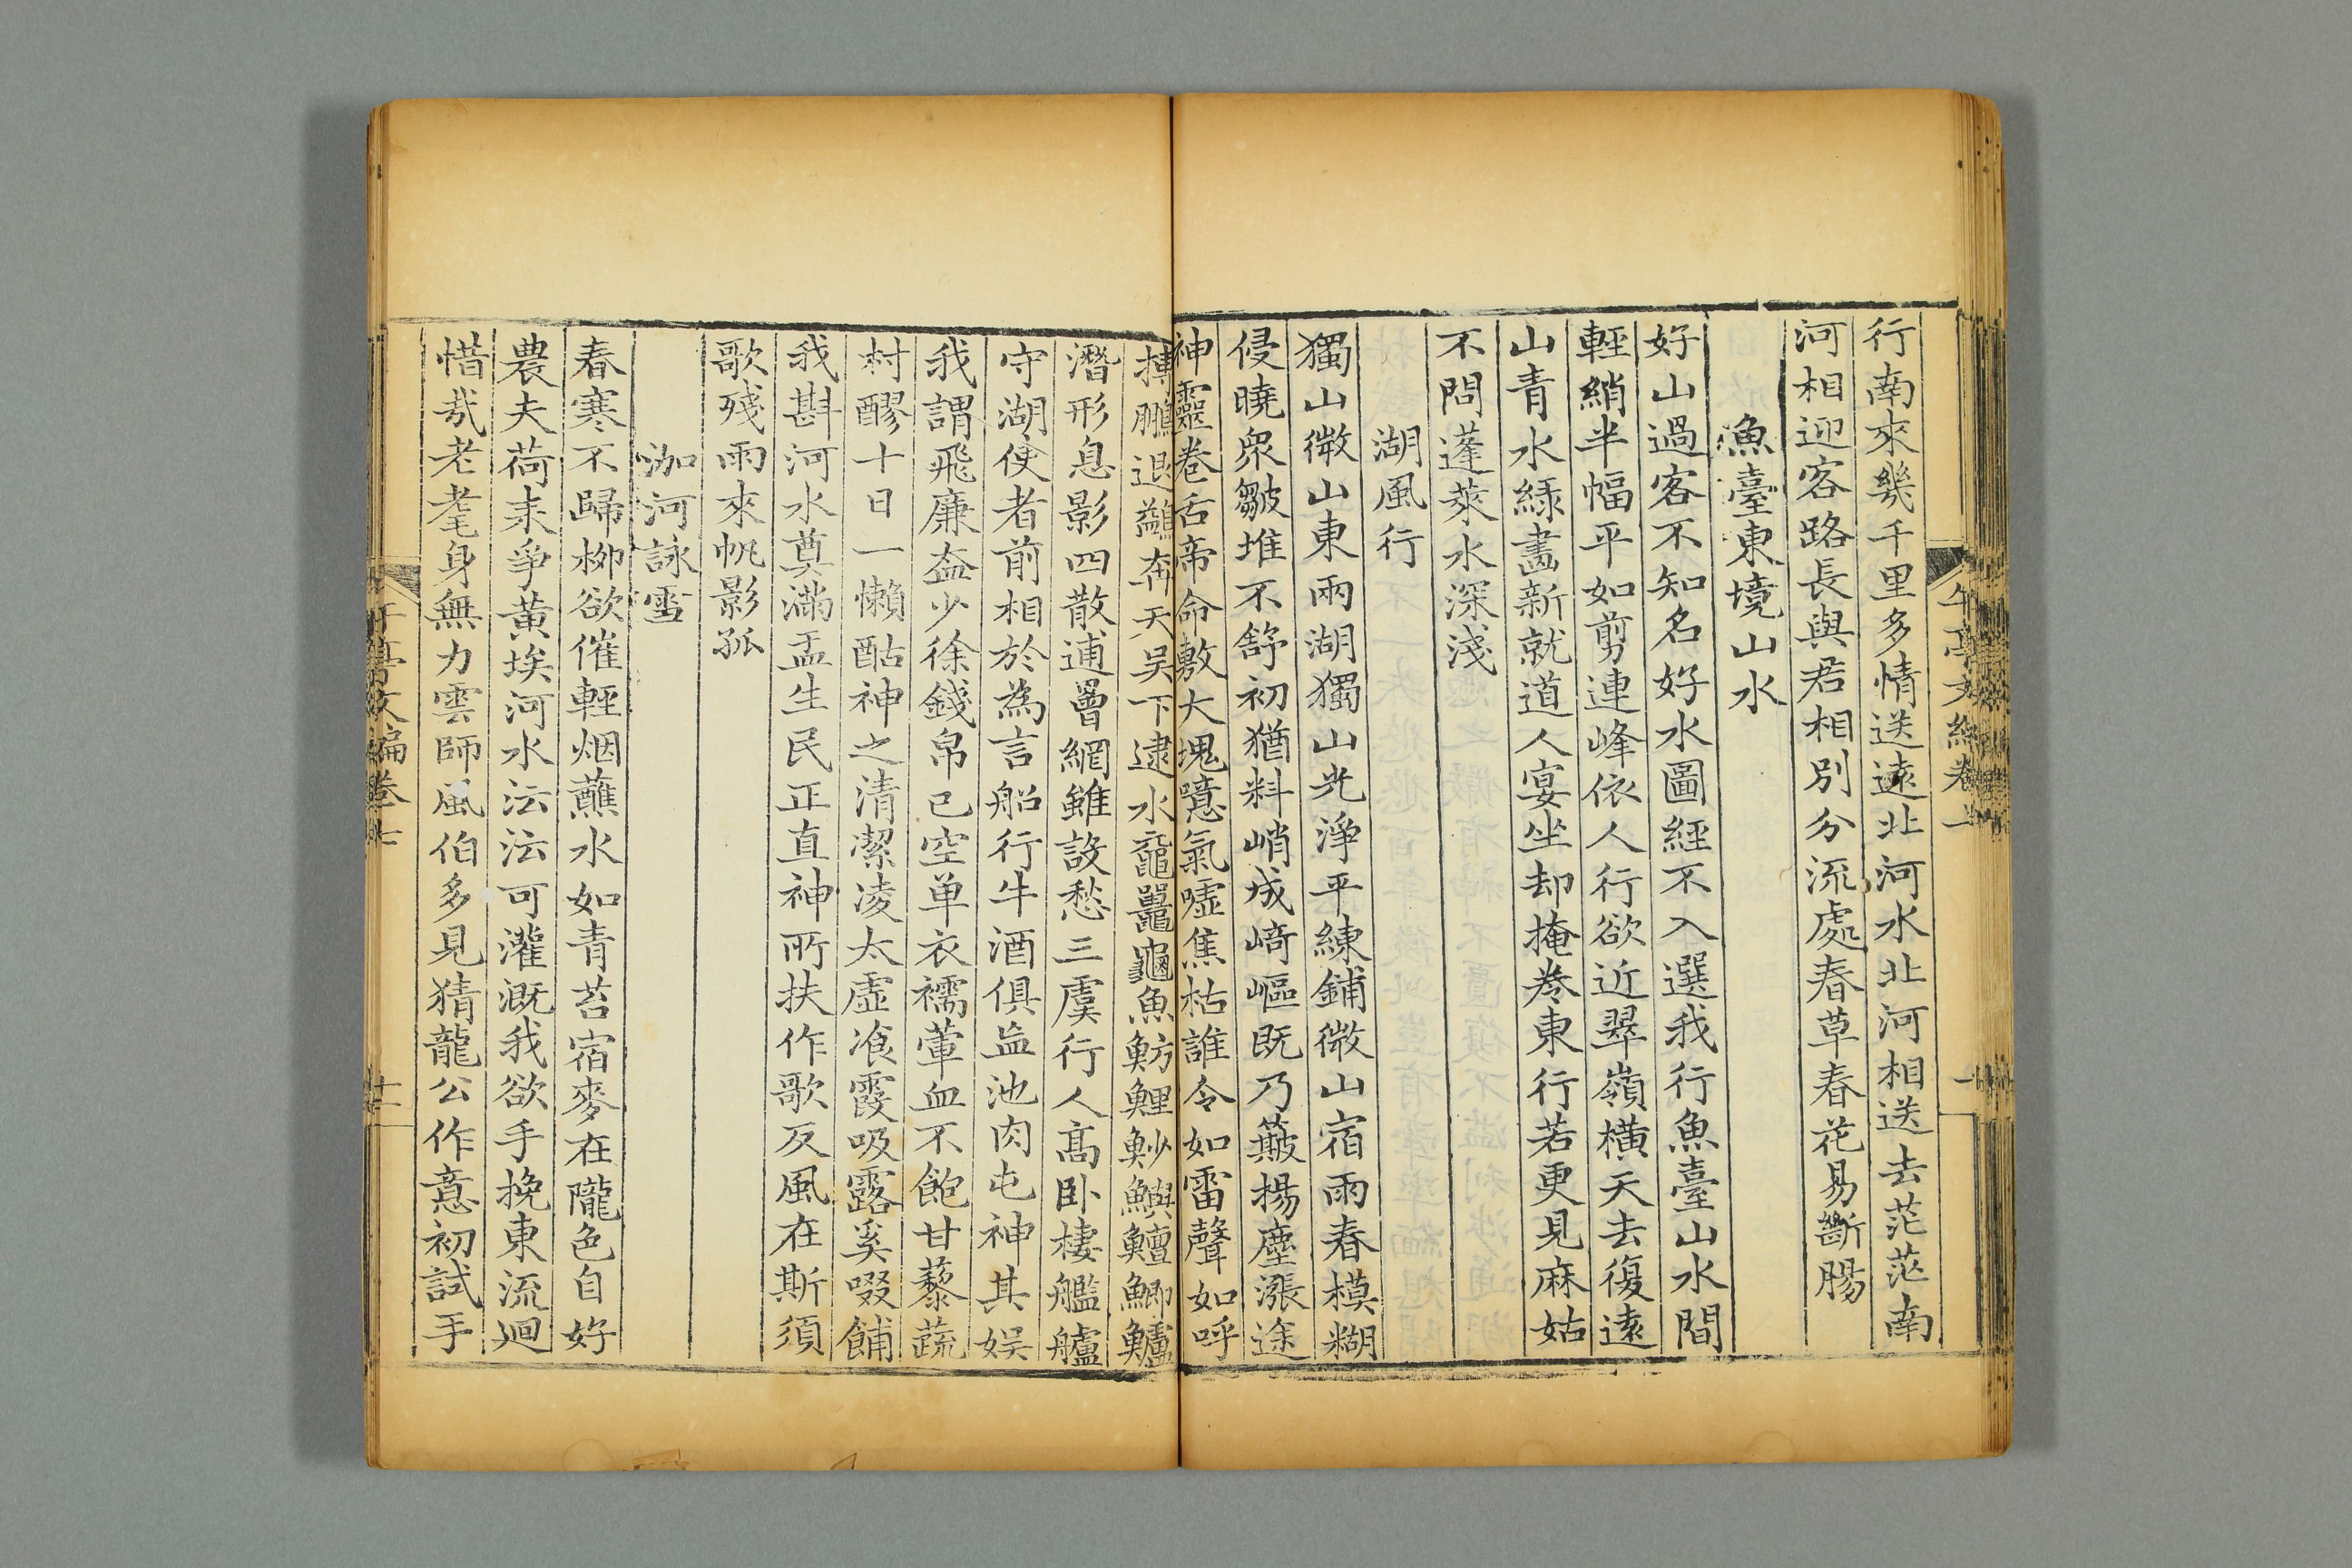 行南來幾千里多情送遠北河水北河相送去茫茫南
河相迎客路長與君相別分流處春草春花易斷腸
魚臺東境山水
好山過客不知名好水圖經不入選我行魚臺山水間
輕綃半幅平如剪連峰依人行欲近翠嶺橫天去復遠
山青水綠畵新就道人宴坐却掩卷東行若更見麻姑
不問蓬萊水深淺
湖風行
獨山微山東兩湖獨山光淨平練鋪微山宿雨春模糊
侵曉衆皺堆不舒初猶料峭成﨑嶇既乃簸揚塵漲途
神靈卷舌帝命敷大塊噫氣噓焦枯誰令如雷聲如呼
摶鵬退鷁奔天吴下逮水黿鼉龜魚魴鯉魦鱮鱣鯽鱸
潛形息影四散逋罾網雖設愁三虞行人髙卧棲艦艫
守湖使者前相於為言船行牛酒俱盆池肉屯神其娱
我謂飛廉盍少徐錢帛已空单衣襦葷血不飽甘藜蔬
村醪十日一懶酤神之清潔凌太虛飡霞吸露奚啜餔
我斟河水奠滿盂生民正直神所扶作歌反風在斯須
歌殘雨來帆影孤
泇河詠雪
春寒不歸栁欲催輕烟蘸水如青苔宿麥在隴色自好
農夫荷耒爭黄埃河水沄沄可灌溉我欲手挽東流廻
惜㢤老耄身無力雲師風伯多見猜龍公作意初試手
午亭文編卷七
十二